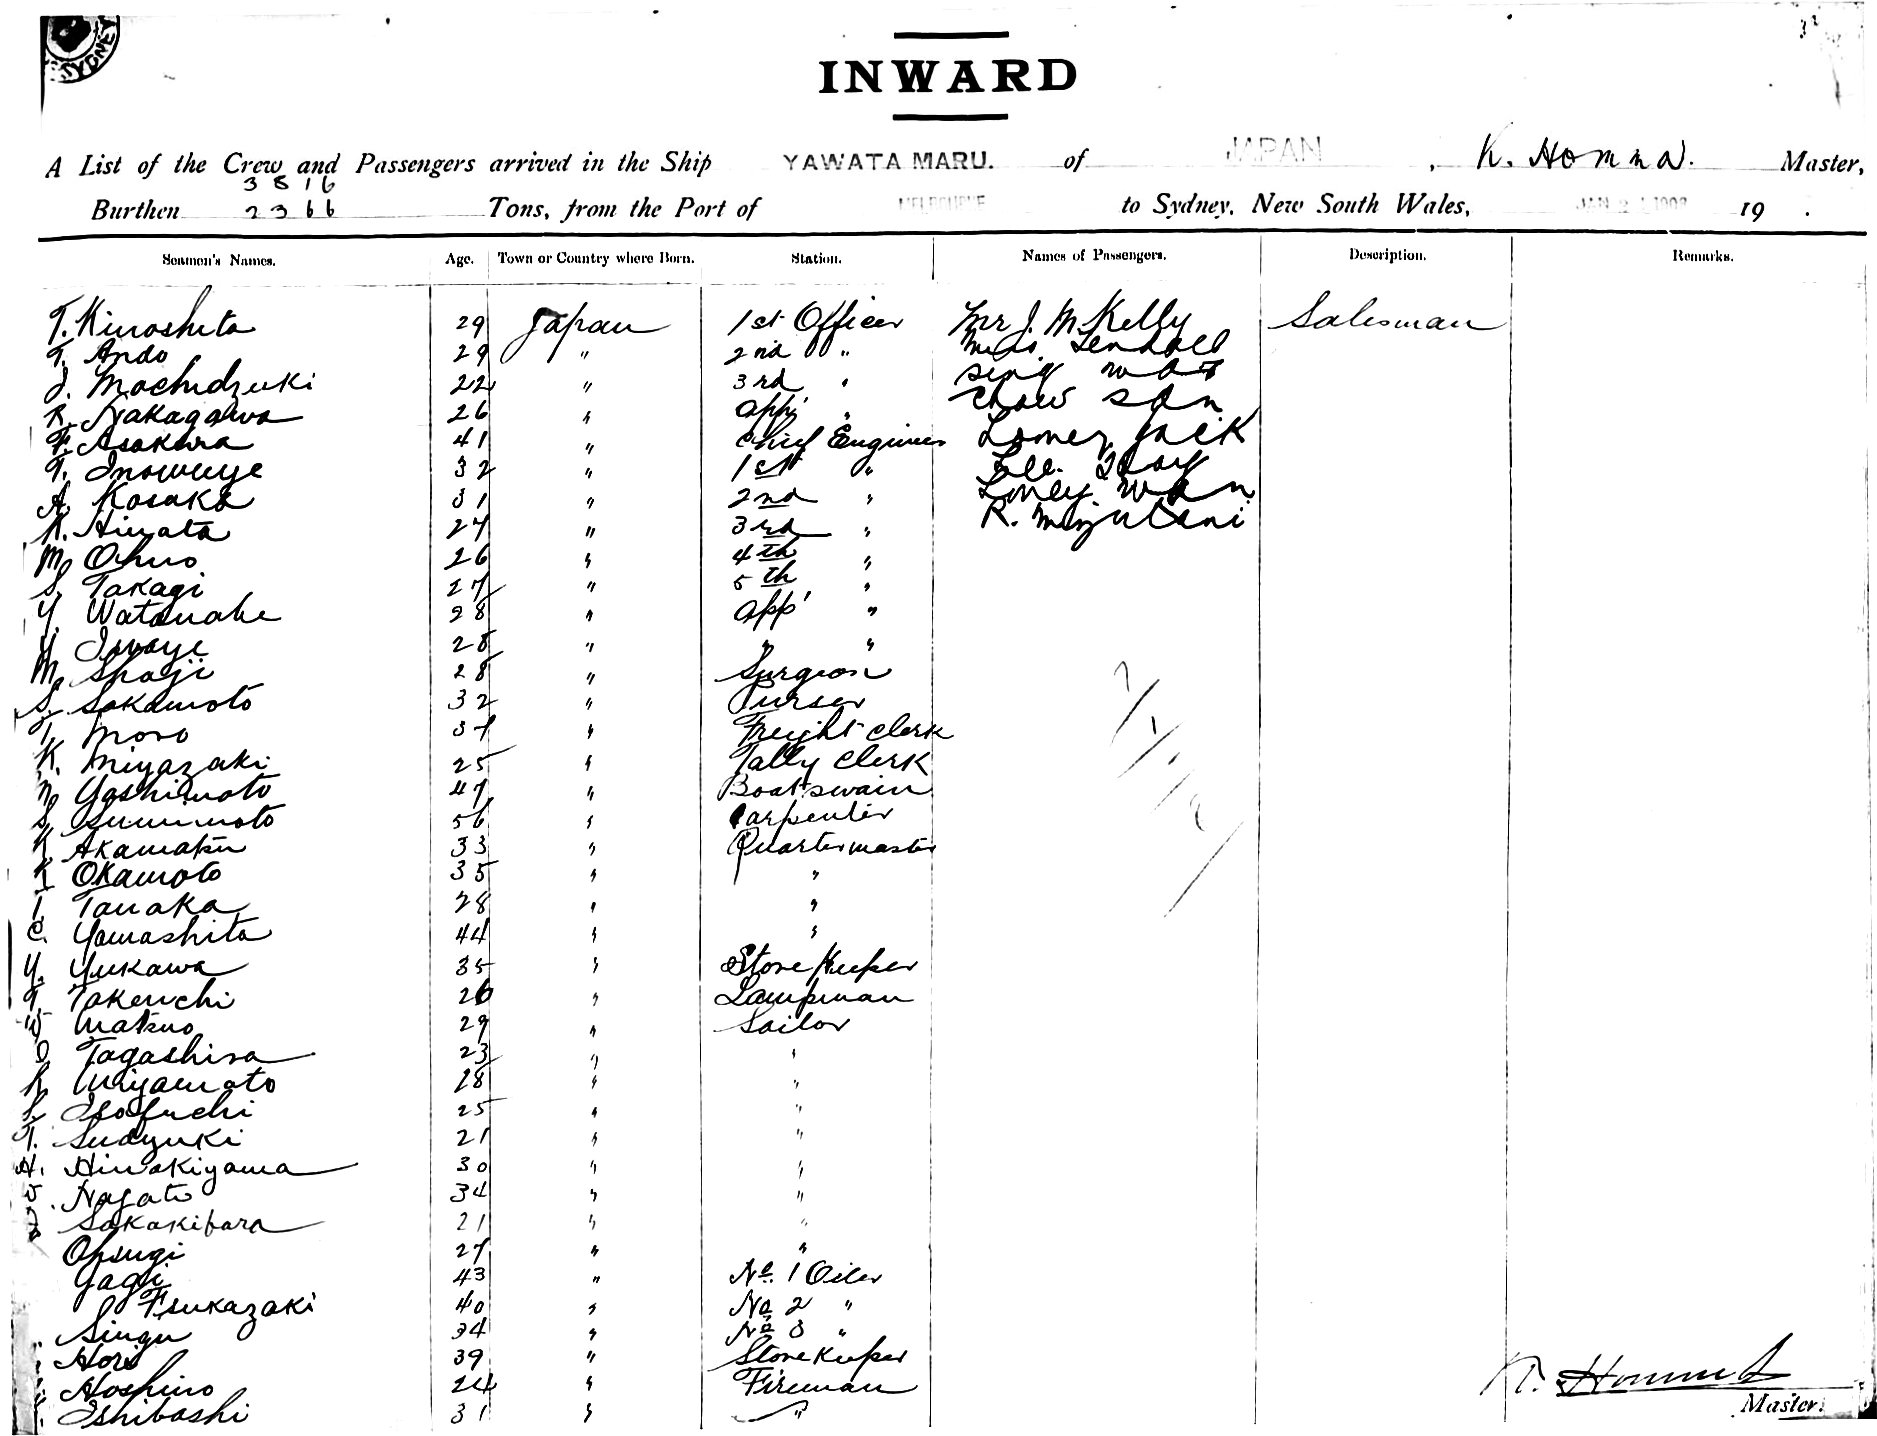 SYDNEY
INWARD
A List of the Crew and Passengers arrived in the Ship YAWATA MARU. of JAPAN, K. Homma. Master,
3816
Burthen 2366 Tons, from the Port of MELBOURNE to Sydney, New South Wales, JAN 2 19 .
Seamen's Names. Age. Town or Country where Born. Station. Names of Passengers. Description. Remarks.
T. Kinoshita 29 Japan 1st Officer Mr J. M. Kelly Salesman
T. Ando 29 " 2nd " Miss Lendall
J. Mochidzuki 22 " 3rd " Sing Wat
K. Nakagawa 26 " app' " Chow San
F. Asakura 41 " Chief Engineer Loomey Jack
T. Inowuye 32 " 1st " Lee
A. Kosaka 31 " 2nd " Loney Wan
K. Hirata 27 " 3rd " R. Mizutani
M. Ohno 26 " 4th "
S. Takagi 27 " 5th "
Y. Watanabe 28 " app' "
Y. Iwaye 28 " " "
M. Shoji 28 " Surgeon
S. Sakamoto 32 " Purser
T. Moro 37 " Freight Clerk
K. Miyazaki 25 " Tally Clerk
N. Yoshimoto 47 " Boatswain
S. Sumimoto 56 " Carpenter
K. Akamatsu 33 " Quartermaster
K. Okamoto 35 " "
T. Tanaka 28 " "
C. Yamashita 44 " "
Y. Yukawa 35 " Store Keeper
T. Takeuchi 26 " Lampman
Matsuo 29 " Sailor
Tagashira 23 " "
K. Miyamoto 28 " "
Isofuchi 25 " "
T. Sudzuki 21 " "
H. Hiwakiyama 30 " "
Nagato 34 " "
Sakakibara 21 " "
Ohsugi 27 " "
Yagi 43 " No. 1 Oiler
Tsukazaki 40 " No 2 "
Singu 34 " No 3 "
Hori 39 " Store Keeper
Hoshino 24 " Fireman
Ishibashi 31 " "
K. Homma
Master.